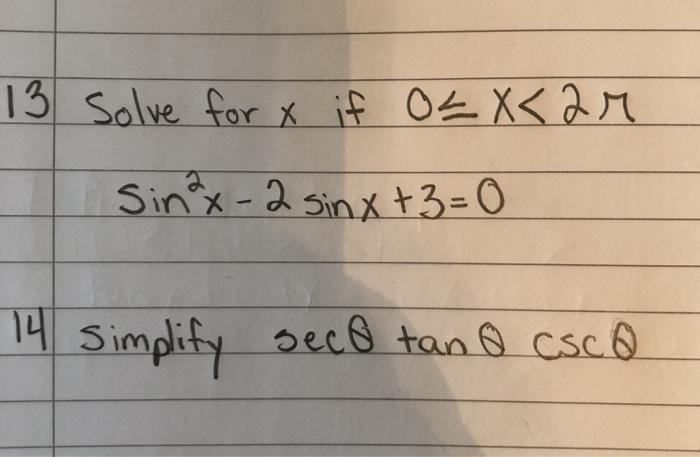 13 Solve for x if 0 ≤ x < 2π
sin²x - 2 sinx + 3 = 0
14 simplify secθ tanθ cscθ